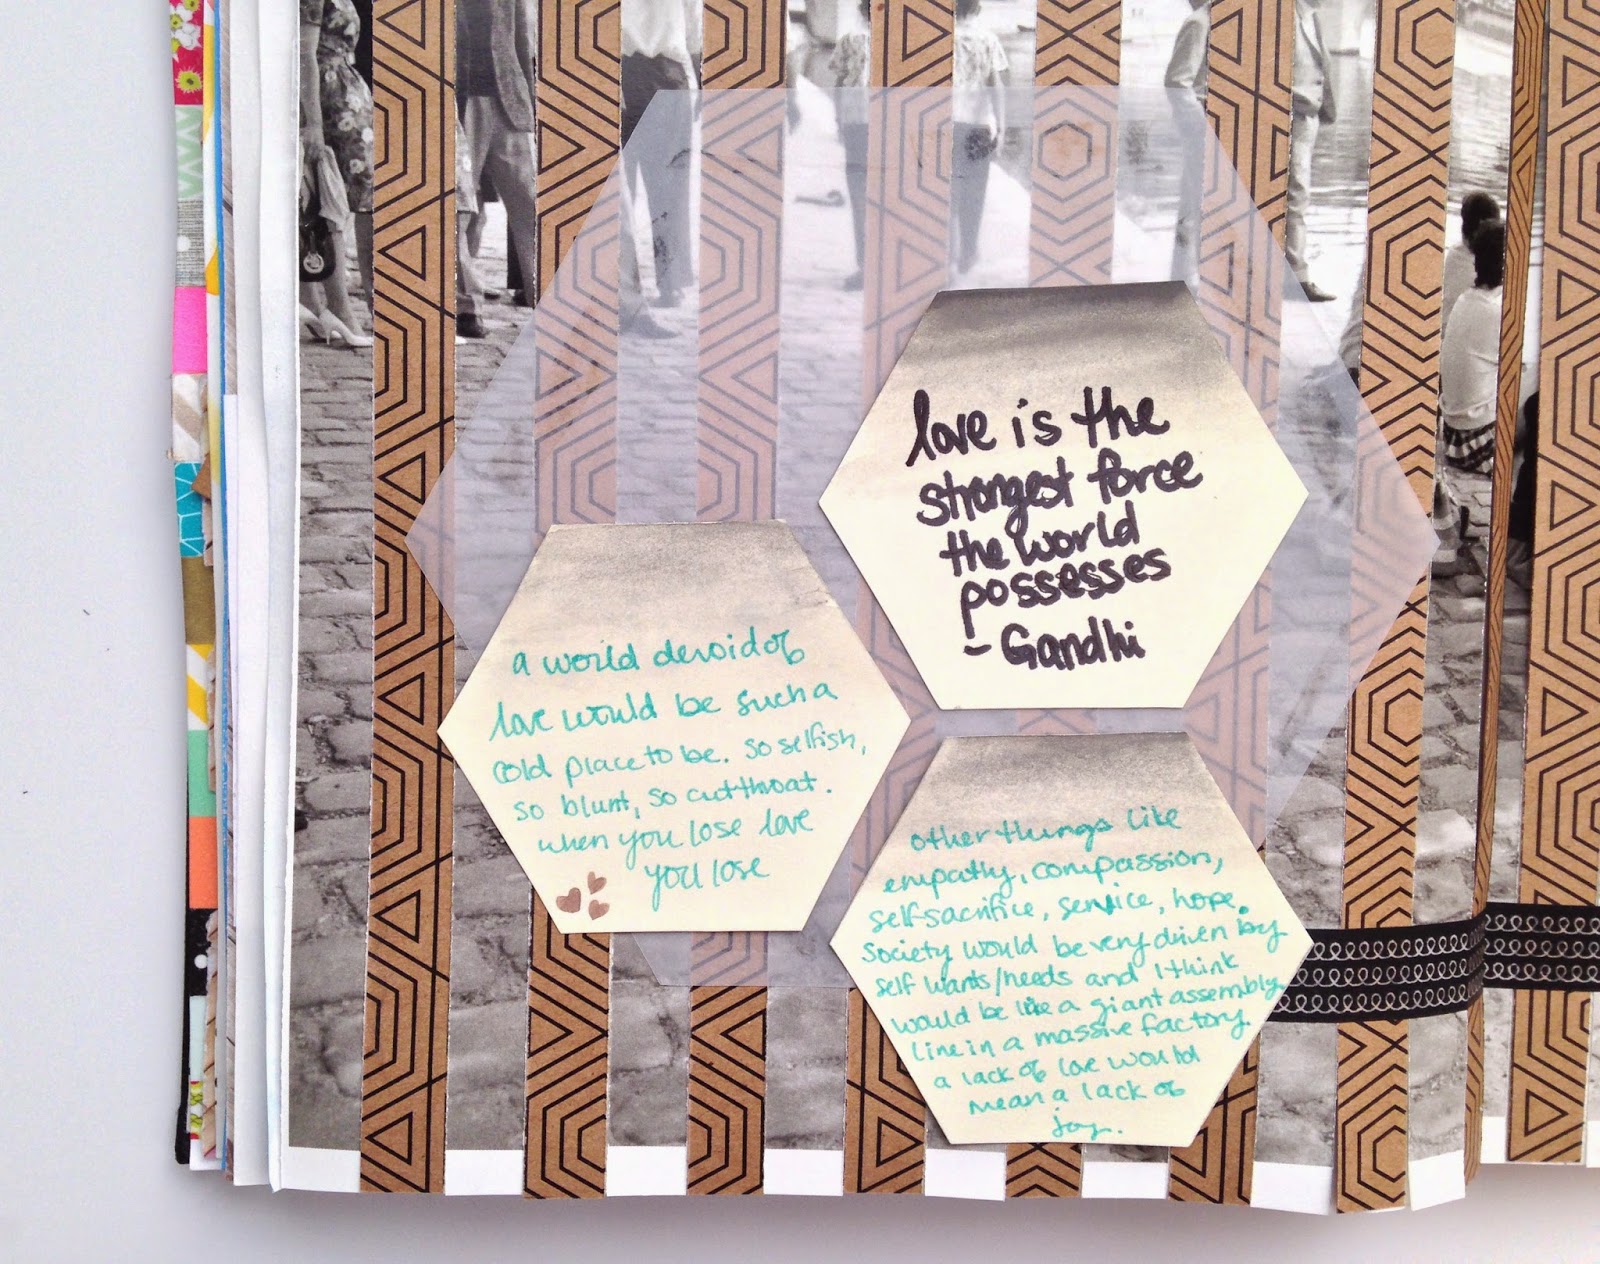 love is the
strongest force
the world
possesses
- Gandhi
a world devoid of
love would be such a
cold place to be. so selfish,
so blunt, so cutthroat.
when you lose love
you lose
other things like
empathy, compassion,
selfsacrifice, service, hope.
society would be very driven by
self wants/needs and I think
would be like a giant assembly
line in a massive factory.
a lack of love would
mean a lack of
joy.